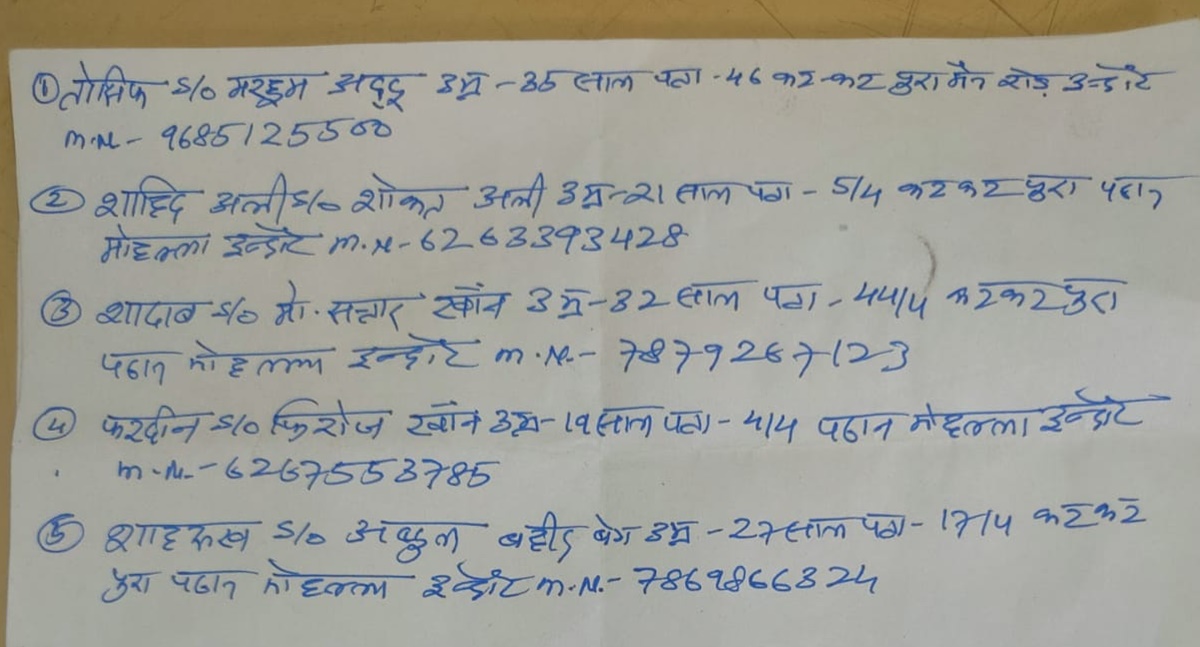 ① तोसिफ S/o मरहूम अददू उम्र - 35 साल पता - 46 कट-कट पुरा मैन रोड़ इन्दौर
m.N.- 9685125500
② शाहिद अली S/o शोकत अली उम्र-21 साल पता - 5/4 कटकट पुरा पठान
मोहल्ला इन्दौर m.N-6263393428
③ शादाब S/o मो. सत्तार खाँन उम्र-32 साल पता - 44/4 कटकट पुरा
पठान मोहल्ला इन्दौर m.N.- 7879267123
④ फरदीन S/o फिरोज खाँन उम्र-19 साल पता - 4/4 पठान मोहल्ला इन्दौर
m.N.- 6267553785
⑤ शाहरुख S/o अब्दुल वहीद बेग उम्र - 27 साल पता - 17/4 कटकट
पुरा पठान मोहल्ला इन्दौर m.N.- 7869866324